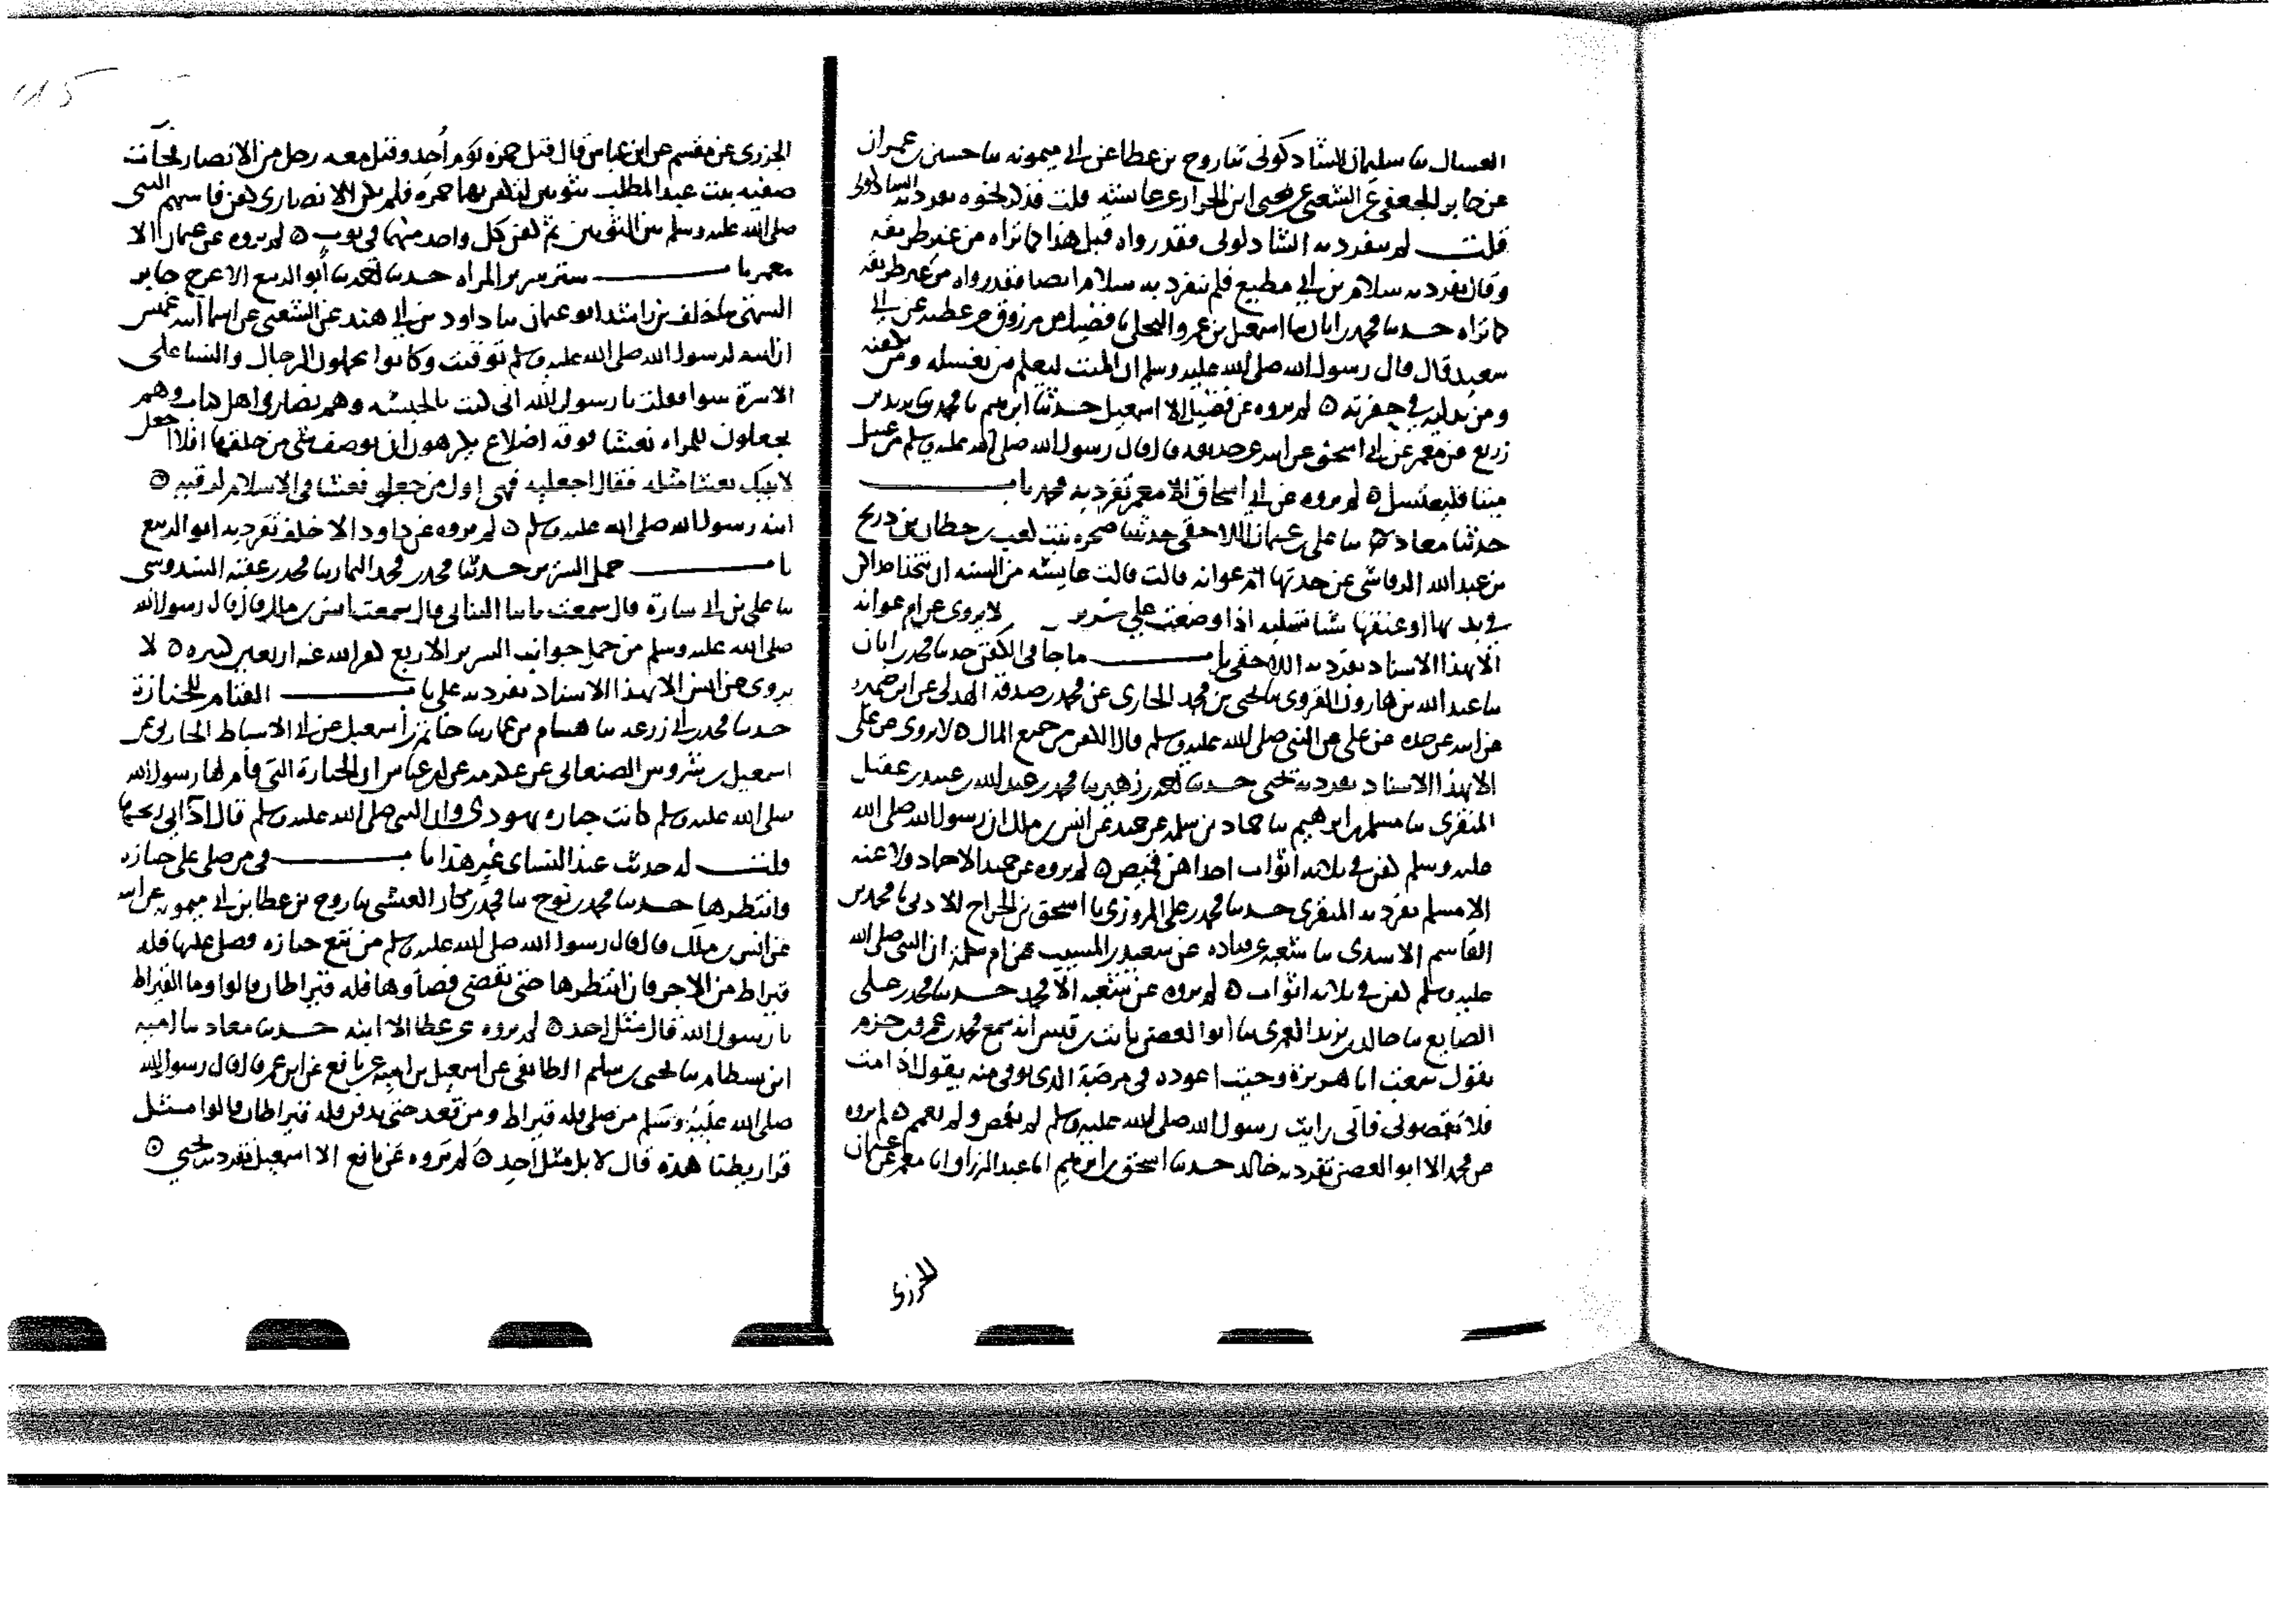 العسال ثنا سليمان الشاذكوني ثنا روح بن عطا عن ابي ميمونه ثنا حسين عمران
عن جابر الجعفي عن الشعبي عن يحيى ابن الجزار عن عايشه قلت فذكر نحوه تفرد به الشاذكوني
قلت لم ينفرد به الشاذكوني فقد رواه قبل هذا كما تراه من غير طريقه
وقال تفرد به سلام بن ابي مطيع فلم ينفرد به سلام ايضا فقد رواه من غير طريقه
كما تراه حدثنا محمد بن ابان ثنا اسمعيل بن عمرو البجلي ثنا فضيل بن مرزوق عن عطيه عن ابي
سعيد قال قال رسول الله صلى الله عليه وسلم ان الميت ليعلم من يغسله ومن يكفنه
ومن يدليه في حفرته لم يروه عن فضيل الا اسمعيل حدثنا ابرهيم ثنا محمد بن يزيد بن
زريع عن معمر عن ابي اسحق عن ابيه عن حذيفه قال قال رسول الله صلى الله عليه وسلم من غسل
ميتا فليغتسل لم يروه عن ابي اسحاق الا معمر تفرد به محمد باب
حدثنا معاذ ثنا علي بن عثمان اللاحقي حدثتنا صخره بنت كعب بن حطان بن دريج
بن عبد الله الرقاشي عن جدتها ام عوانه قالت قالت عايشه من السنه ان يتخذ
في يديها او عنقها شيا تسلبه اذا وضعت على سرير لا يروى عن ام عوانه
الا بهذا الاسناد تفرد به اللاحقي باب ما جا في الكفن حدثنا محمد بن ابان
ثنا عبد الله بن هارون الفروي ثنا يحيى بن محمد الجاري عن محمد بن صدقة الفدكي عن ابن
عن ابيه عن جده عن علي عن النبي صلى الله عليه وسلم قال الكفن من جميع المال لا يروى عن علي
الا بهذا الاسناد تفرد به يحيى حدثنا احمد بن زهير ثنا محمد بن عبد الله بن عبيد بن عقيل
المنقري ثنا مسلم بن ابرهيم ثنا حماد بن سلمه عن حميد عن انس بن ملك ان رسول الله صلى الله
عليه وسلم كفن في ثلاثه اثواب احداهن قميص لم يروه عن حميد الا حماد ولا عنه
الا مسلم تفرد به المنقري حدثنا محمد بن علي المروزي ثنا اسحق بن الجراح الاذني ثنا محمد بن
القاسم الاسدي ثنا شعبه عن قتاده عن سعيد بن المسيب عن ام سلمة ان النبي صلى الله
عليه وسلم كفن في ثلاثه اثواب لم يروه عن شعبه الا محمد حدثنا محمد بن علي
الصايغ ثنا خالد بن يزيد العمري ثنا ابو الغصن ثابت بن قيس انه سمع محمد بن عمرو بن حزم
يقول سمعت ابا هريرة وجيت اعوده في مرضه الذي توفي فيه يقول اذا مت
فلا تقمصوني فاني رايت رسول الله صلى الله عليه وسلم لم يقمص ولم يعمم لم يروه
عن محمد الا ابو الغصن تفرد به خالد حدثنا اسحق بن ابرهيم انا عبد الرزاق انا معمر عن عثمان
الجزري
الجزري عن مقسم عن ابن عباس قال قتل حمزه يوم احد وقتل معه رجل من الانصار فجات
صفيه بنت عبد المطلب بثوبين لتكفن بها حمزه فلم يكن للانصاري كفن فاسهم النبي
صلى الله عليه وسلم بين الثوبين ثم كفن كل واحد منهما في ثوب لم يروه عن عثمان الا
معمر باب ستر سرير المراه حدثنا احمد ثنا ابو الربيع الاعرج
السمتي ثنا خلف بن راشد ابو عثمان ثنا داود بن ابي هند عن الشعبي عن اسما ابنه عميس
ان ابنه لرسول الله صلى الله عليه وسلم توفيت وكانوا يحملون الرجال والنسا على
الاسرة سوا فقلت يا رسول الله اني كنت بالحبشه وهم نصارى اهل كتاب وهم
يجعلون للمراه نعشا فوقه اضلاع يكرهون ان يوصف شي من خلقها افلا اجعل
لابنتك نعشا مثله فقال اجعليه فهي اول من جعل نعشا في الاسلام لرقيه
ابنه رسول الله صلى الله عليه وسلم لم يروه عن داود الا خلف تفرد به ابو الربيع
باب حمل السرير حدثنا محمد بن محمد التمار ثنا محمد بن عقبه السدوسي
ثنا علي بن ابي سارة قال سمعت ثابتا البناني قال سمعت انس بن ملك قال قال رسول الله
صلى الله عليه وسلم من حمل جوانب السرير الاربع كفر الله عنه اربعين كبيره لا
يروى عن انس الا بهذا الاسناد تفرد به علي باب القيام للجنازة
حدثنا محمد بن ابي زرعه ثنا هشام بن عمار ثنا حاتم بن اسمعيل عن ابي الاسباط الحارثي عن
اسمعيل بن شروس الصنعاني عن عكرمه عن ابن عباس ان الجنازة التي قام لها رسول الله
صلى الله عليه وسلم كانت جنازه يهودي وان النبي صلى الله عليه وسلم قال اذاني ريحها
قلت له حديث عند النساي غير هذا باب في من صلى على جنازه
وانتظرها حدثنا محمد بن نوح ثنا محمد بن بكار العيشي ثنا روح بن عطا بن ابي ميمونه عن ابيه
عن انس بن ملك قال قال رسول الله صلى الله عليه وسلم من تبع جنازه فصلى عليها فله
قيراط من الاجر فان انتظرها حتى يقضى قضاوها فله قيراطان قالوا وما القيراط
يا رسول الله قال مثل احد لم يروه عن عطا الا ابنه حدثنا معاذ ثنا اميه
ابن بسطام ثنا يحيى بن سليم الطايفي عن اسمعيل بن اميه عن نافع عن ابن عمر قال قال رسول الله
صلى الله عليه وسلم من صلى فله قيراط ومن قعد حتى يدفن فله قيراطان قالوا مثل
قراريطنا هذه قال لا بل مثل احد لم يروه عن نافع الا اسمعيل تفرد به يحيى